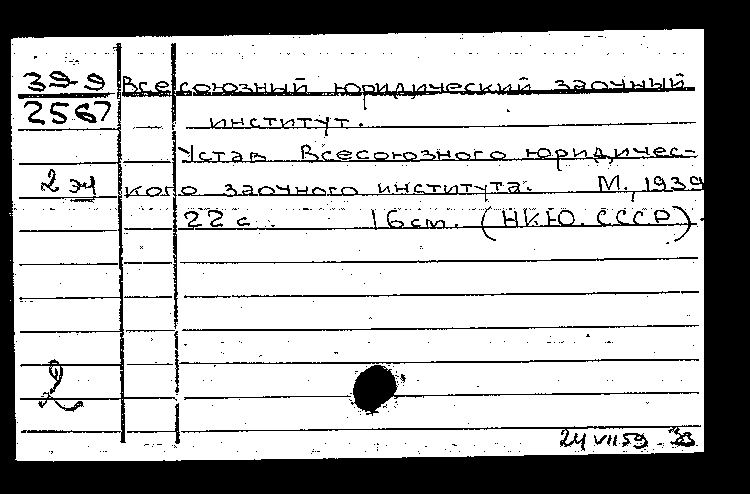 39-9 Всесоюзный юридический заочный
2567 институт.
Устав Всесоюзного юридичес-
2 эк кого заочного института. М., 1939
22 с. 16 cm. (НКЮ. СССР).
2
24 VII 59